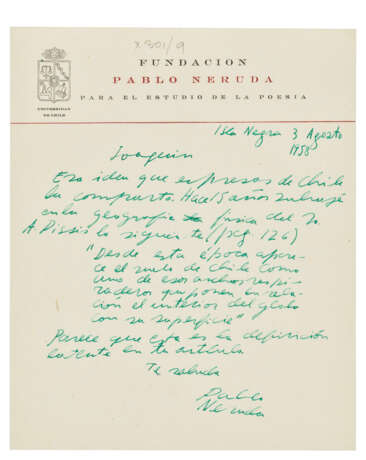 x301/9
FUNDACION
PABLO NERUDA
PARA EL ESTUDIO DE LA POESIA
UNIVERSIDAD
DE CHILE
Isla Negra 3 Agosto
1958
Joaquin
Esa idea que expresas de Chile
la comparto. Hace 15 años subrayé
en la geografía fisica del
A Pissis lo siguiente (pag. 126)
"Desde esta época apare-
ce el suelo de Chile como
uno de esos anchos respi-
raderos que ponen en rela-
ción el interior del globo
con su superficie"
Parece que esta es la definición
latente en tu artículo
Te saluda
Pablo
Neruda